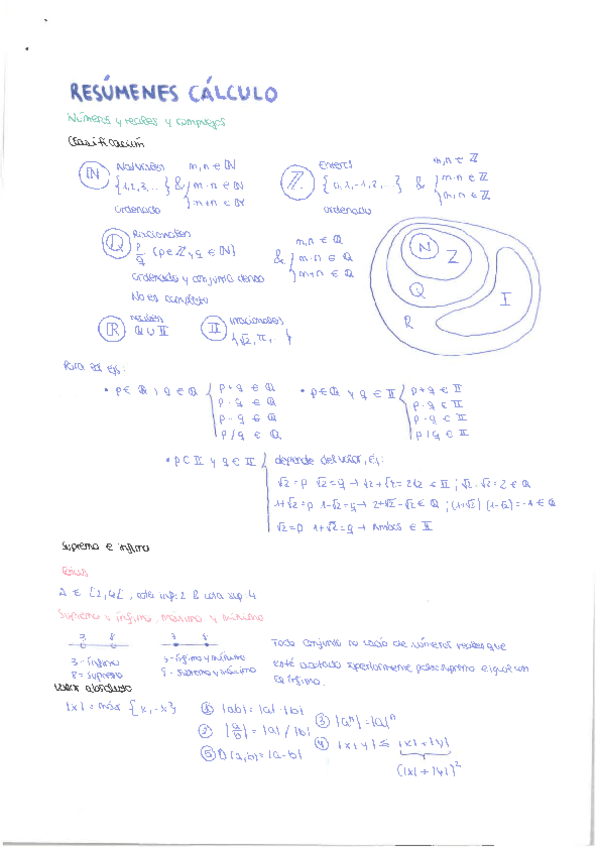 RESÚMENES CÁLCULO
Números reales y complejos
Clasificación
ℕ Naturales {1,2,3,...} & { m,n ∈ ℕ m·n ∈ ℕ m+n ∈ ℕ
ordenado
ℤ Enteros {0,1,-1,2,...} & { m,n ∈ ℤ m·n ∈ ℤ m+n ∈ ℤ
ordenado
ℚ Racionales p/q (p∈ℤ y q ∈ ℕ) & { m,n ∈ ℚ m·n ∈ ℚ m+n ∈ ℚ
ordenado y conjunto denso
No es completo
ℝ reales ℚ ∪ 𝕀
𝕀 irracionales {√2, π, ... }
N Z Q R I
Para
• p∈ ℚ y q ∈ ℚ { p+q ∈ ℚ
p-q ∈ ℚ
p·q ∈ ℚ
p/q ∈ ℚ
• p∈ℚ y q ∈ 𝕀 { p+q ∈ 𝕀
p-q ∈ 𝕀
p·q ∈ 𝕀
p/q ∈ 𝕀
• p ∈ 𝕀 y q ∈ 𝕀 { depende del valor, Ej:
√2=p √2=q → √2+√2=2√2 ∈ 𝕀 ; √2·√2=2 ∈ ℚ
1+√2=p 1-√2=q → 2+√2-√2 ∈ ℚ ; (1+√2)(1-√2)=-1 ∈ ℚ
√2=p 1+√2=q → Ambos ∈ 𝕀
Supremo e ínfimo
Supremo, ínfimo, máximo y mínimo
3 8
3 8
3 - ínfimo
8 = supremo
3 - ínfimo y mínimo
8 - supremo y máximo
Todo conjunto no vacío de números reales que
está acotado superiormente posee supremo e igual con
el ínfimo.
Valor absoluto
|x| = máx {x,-x}
① |ab| = |a|·|b|
② |a/b| = |a| / |b|
③ |aⁿ| = |a|ⁿ
④ |x+y| ≤ |x|+|y|
(|x|+|y|)²
⑤ D(a,b)=|a-b|